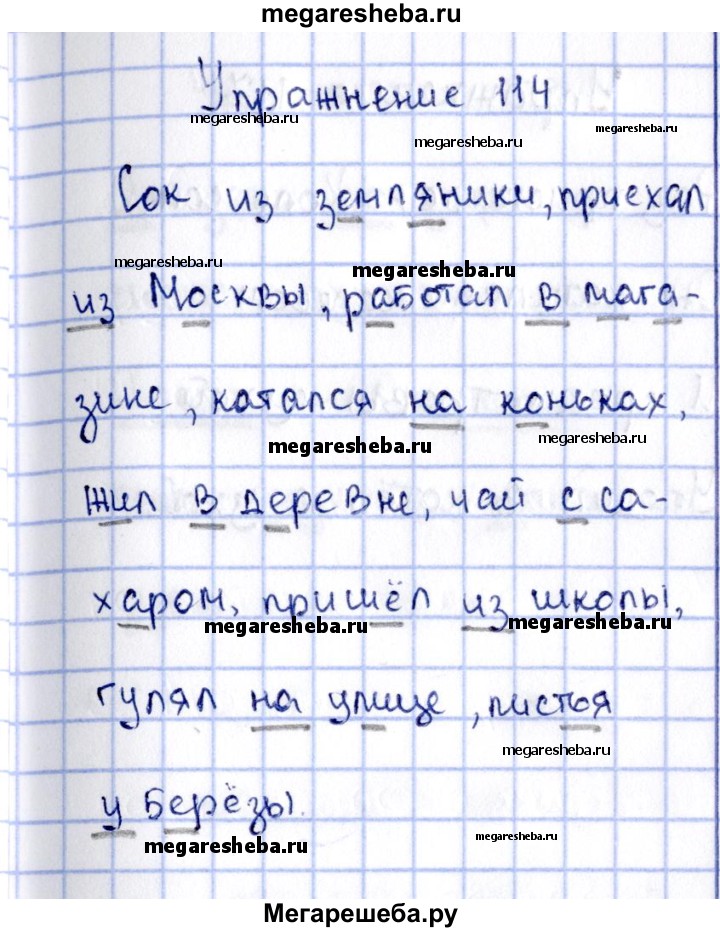 megaresheba.ru
Упражнение 114
megaresheba.ru
megaresheba.ru
megaresheba.ru
Сок из земляники, приехал
megaresheba.ru
megaresheba.ru
из Москвы, работал в мага-
зине, катался на коньках,
megaresheba.ru
megaresheba.ru
жил в деревне, чай с са-
харом, пришёл из школы,
megaresheba.ru
megaresheba.ru
гулял на улице, листья
megaresheba.ru
у берёзы.
megaresheba.ru
megaresheba.ru
Мегарешеба.ру